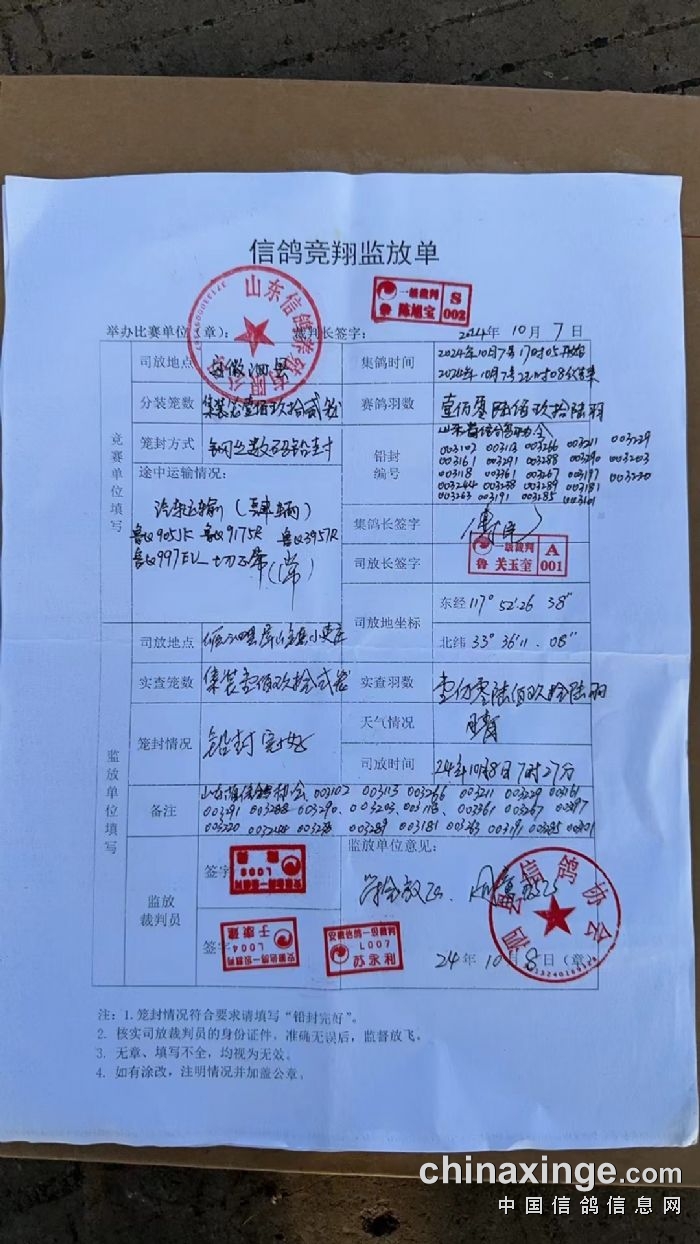 信鸽竞翔监放单
一级裁判
鲁 陈旭宝
S
002
举办比赛单位(章): 裁判长签字: 2024年 10月 7日
山东信鸽
有限公司
竞赛单位填写
司放地点 安徽泗县
集鸽时间 2024年10月7号17时05开始
2024年10月7号22时08结束
分装笼数 集装笼壹佰玖拾贰笼
赛鸽羽数 壹仟零陆佰玖拾陆羽
笼封方式 钢丝数码铅封
铅封编号 山东省信鸽协会
003102 003113 003266 003211 003229
003161 003291 003288 003290 003203
003118 003361 003267 003197 003220
003263 003191 003285
途中运输情况:
汽车运输
一切正常
集鸽长签字
司放长签字
一级裁判
鲁 关玉奎
A
001
司放地坐标
东经 117° 52'.26 38"
北纬 33° 36'11 .08"
监放单位填写
司放地点
实查笼数
实查羽数 壹仟零陆佰玖拾陆羽
笼封情况 铅封完好
天气情况 晴
司放时间 24年10月8日7时27分
备注 山东省信鸽协会 003102 003113 003266 003211 003229 003161
003291 003288 003290 003203 003118 003361 003267 003197
003220 003181 003263 003191 003285
监放裁判员
签字
签字
监放单位意见:
符合放飞
安徽信鸽一级裁判
L004
于康建
安徽信鸽一级裁判
L007
苏永利
泗县信鸽协会
24年 10月 8日(章)
注: 1. 笼封情况符合要求请填写“铅封完好”。
2. 核实司放裁判员的身份证件,准确无误后,监督放飞。
3. 无章、填写不全,均视为无效。
4. 如有涂改,注明情况并加盖公章。
chinaxinge.com
中国信鸽信息网